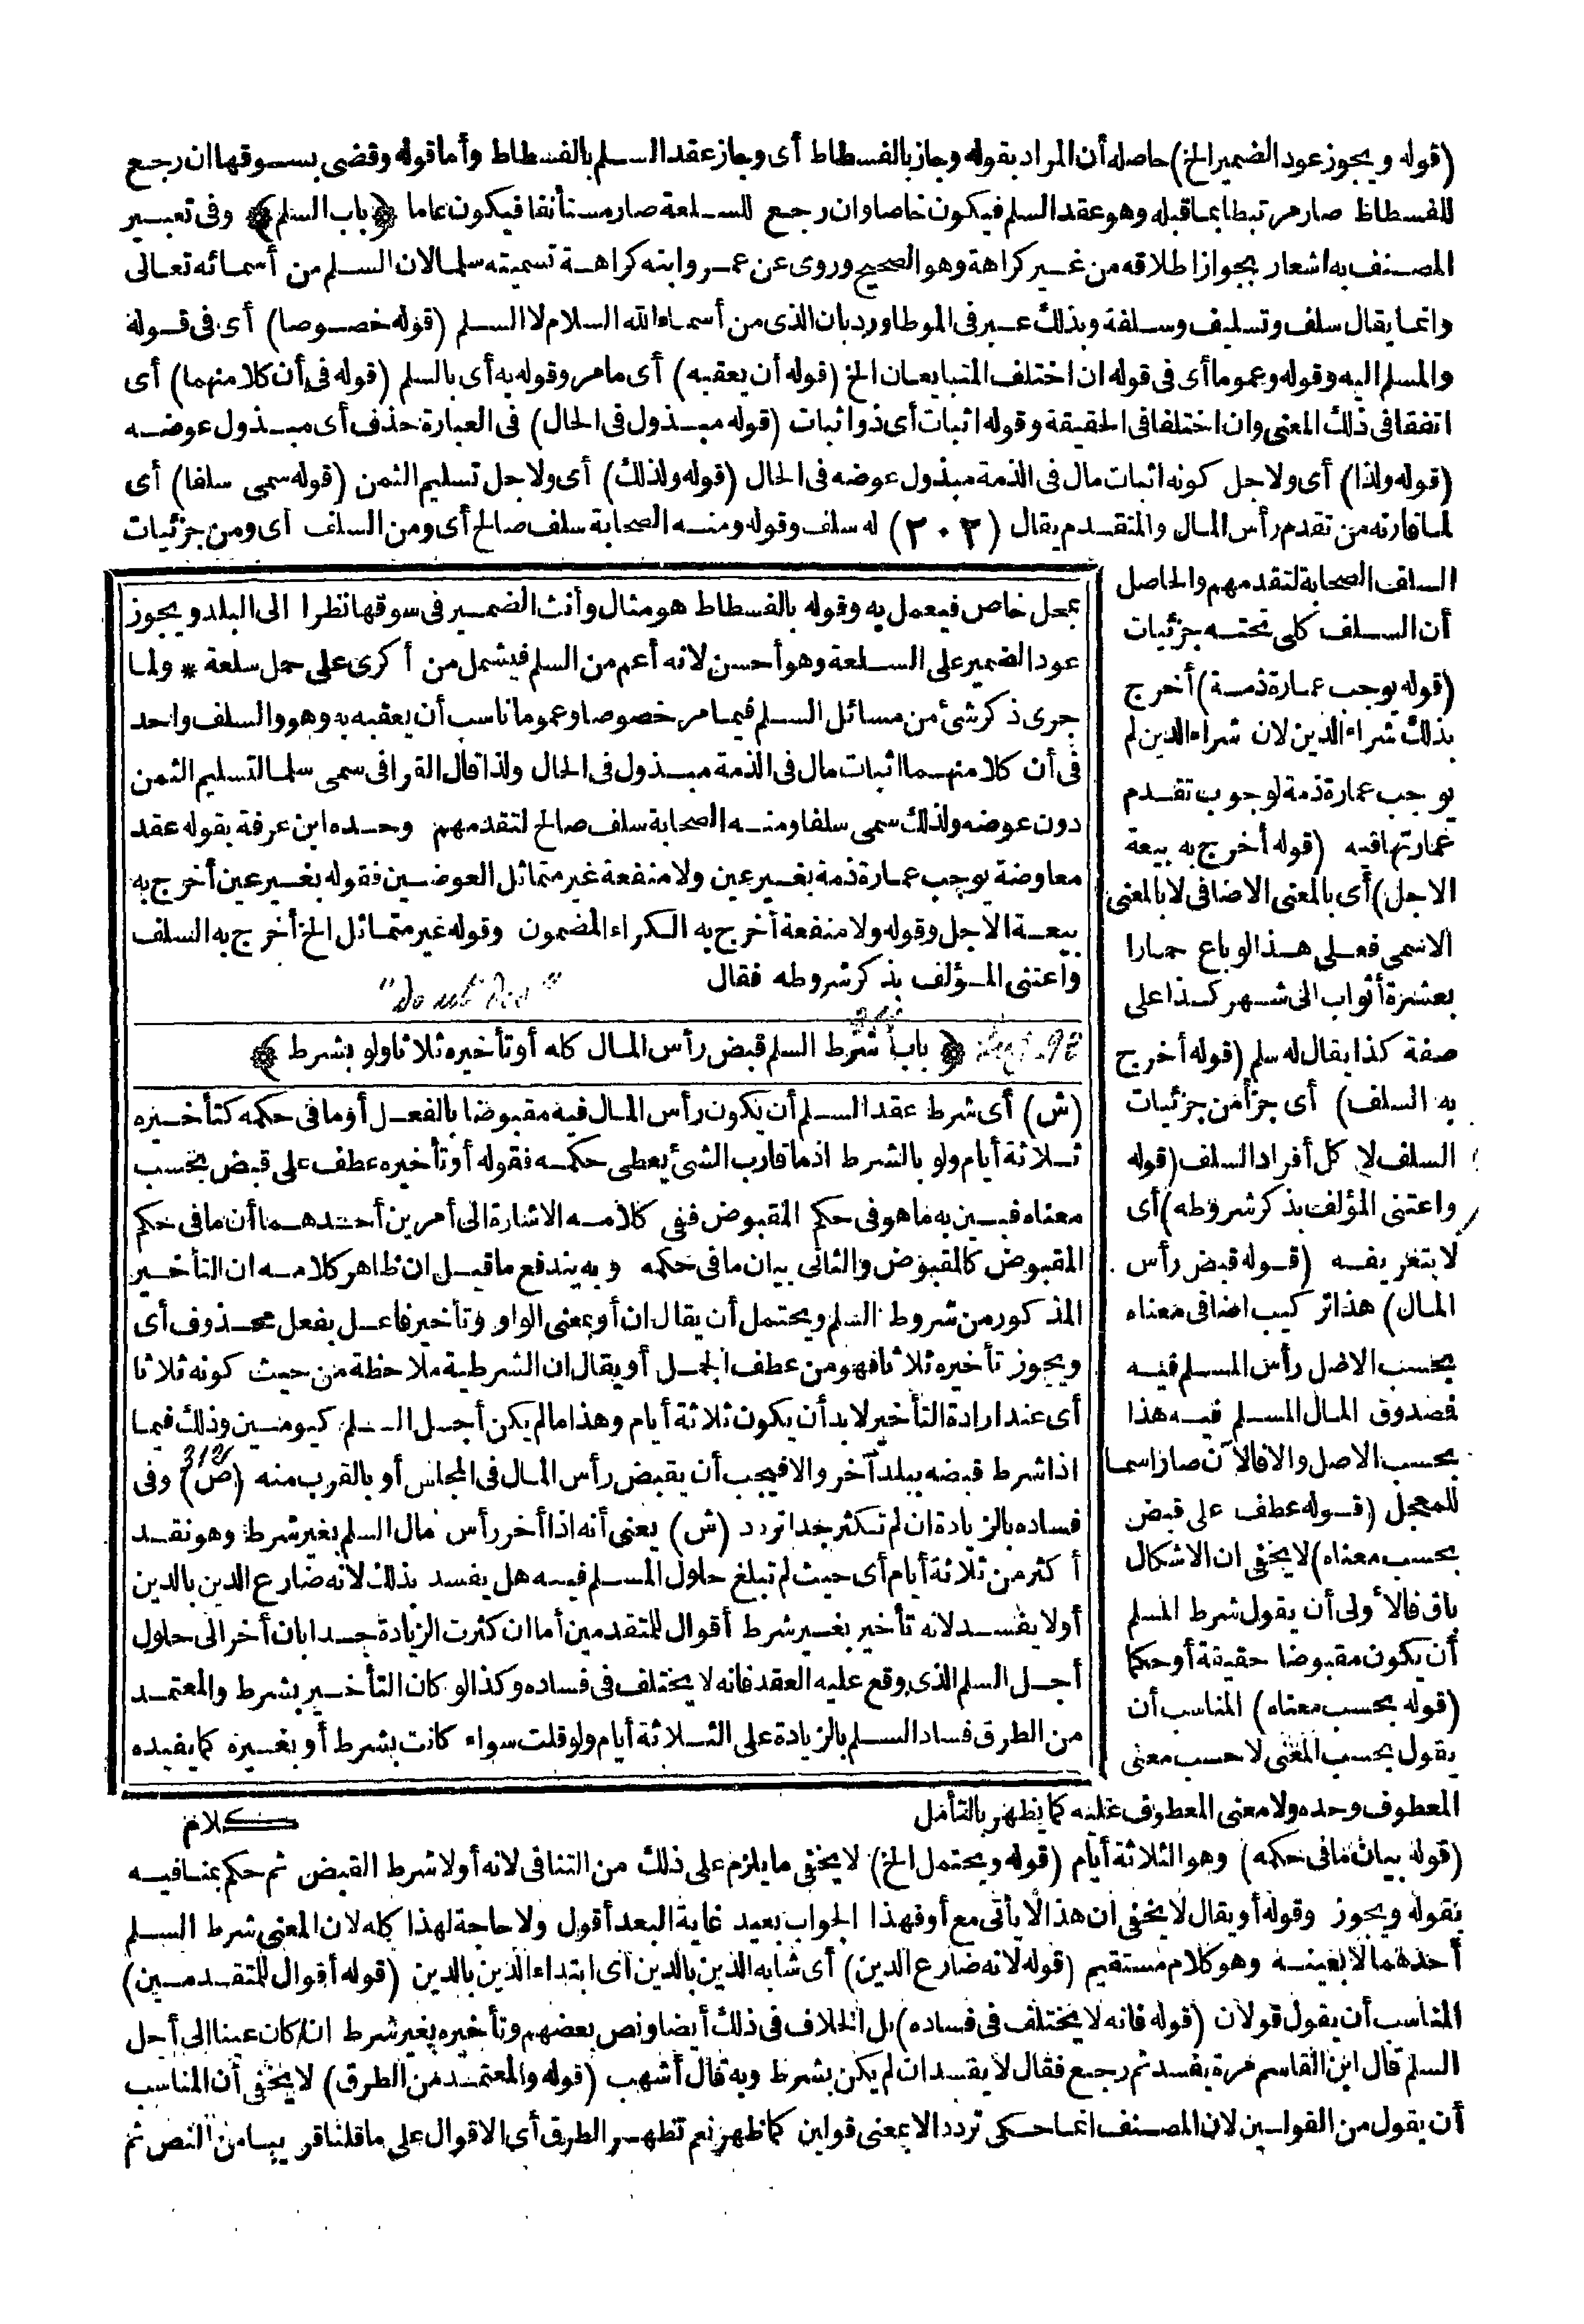 (قوله ويجوز عود الضمير الخ) حاصله أن المراد بقوله وجاز بالفسطاط أى وجاز عقد السلم بالفسطاط وأما قوله وقضى بسوقها ان رجع
للفسطاط صار مرتبطا بما قبله وهو عقد السلم فيكون خاصا وان رجع للسلعة صار مستأنفا فيكون عاما ﴿باب السلم﴾ وفى تعبير
المصنف به اشعار بجواز اطلاقه من غير كراهة وهو الصحيح وروى عن عمر وابنه كراهة تسميته سلما لان السلم من أسمائه تعالى
وانما يقال سلف وتسليف وسلفة وبذلك عبر فى الموطا ورد بان الذى من أسماء الله السلام لا السلم (قوله خصوصا) أى فى قوله
والمسلم اليه وقوله وعموما أى فى قوله ان اختلف المتبايعان الخ (قوله أن يعقبه) أى ما مر وقوله به أى بالسلم (قوله فى أن كلا منهما) أى
اتفقا فى ذلك المعنى وان اختلفا فى الحقيقة وقوله اثبات أى ذو اثبات (قوله مبذول فى الحال) فى العبارة حذف أى مبذول عوضه
(قوله ولذا) أى ولاجل كونه اثبات مال فى الذمة مبذول عوضه فى الحال (قوله ولذلك) أى ولاجل تسليم الثمن (قوله سمى سلفا) أى
لما قارنه من تقدم رأس المال والمتقدم يقال (٢٠٢) له سلف وقوله ومنه الصحابة سلف صالح أى ومن السلف أى ومن جزئيات
السلف الصحابة لتقدمهم والحاصل
أن السلف كلى تحته جزئيات
(قوله يوجب عمارة ذمة) أخرج
بذلك شراء الدين لان شراء الدين لم
يوجب عمارة ذمة لوجوب تقدم
عمارتها فيه (قوله أخرج به بيعة
الاجل) أى بالمعنى الاضافى لا بالمعنى
الاسمى فعلى هذا لو باع حمارا
بعشرة أثواب الى شهر كذا على
صفة كذا يقال له سلم (قوله أخرج
به السلف) أى جزأ من جزئيات
السلف لا كل أفراد السلف (قوله
واعتنى المؤلف بذكر شروطه) أى
لا بتعريفه (قوله قبض رأس
المال) هذا تركيب اضافى معناه
بحسب الاصل رأس المسلم فيه
فصدوق المال المسلم فيه هذا
بحسب الاصل والا فالآن صار اسما
للمعجل (قوله عطف على قبض
بحسب معناه) لا يخفى ان الاشكال
باق فالأولى أن يقول شرط المسلم
أن يكون مقبوضا حقيقة أو حكما
(قوله بحسب معناه) المناسب أن
يقول بحسب المعنى لا حسب معنى
المعطوف وحده ولا معنى المعطوف عليه كما يظهر بالتأمل
بمحل خاص فيعمل به وقوله بالفسطاط هو مثال وأنث الضمير فى سوقها نظرا الى البلد ويجوز
عود الضمير على السلعة وهو أحسن لانه أعم من السلم فيشمل من أكرى على حمل سلعة * ولما
جرى ذكر شئ من مسائل السلم فيما مر خصوصا وعموما ناسب أن يعقبه به وهو والسلف واحد
فى أن كلا منهما اثبات مال فى الذمة مبذول فى الحال ولذا قال القرافى سمى سلما لتسليم الثمن
دون عوضه ولذلك سمى سلفا ومنه الصحابة سلف صالح لتقدمهم وحده ابن عرفة بقوله عقد
معاوضة يوجب عمارة ذمة بغير عين ولا منفعة غير متماثل العوضين فقوله بغير عين أخرج به
بيعة الاجل وقوله ولا منفعة أخرج به الكراء المضمون وقوله غير متماثل الخ أخرج به السلف
واعتنى المؤلف بذكر شروطه فقال
﴿باب شرط السلم قبض رأس المال كله أو تأخيره ثلاثا ولو بشرط﴾
(ش) أى شرط عقد السلم أن يكون رأس المال فيه مقبوضا بالفعل أو ما فى حكمه كتأخيره
ثلاثة أيام ولو بالشرط اذ ما قارب الشئ يعطى حكمه فقوله أو تأخيره عطف على قبض بحسب
معناه فبين به ما هو فى حكم المقبوض ففى كلامه الاشارة الى أمرين أحدهما أن ما فى حكم
المقبوض كالمقبوض والثانى بيان ما فى حكمه وبه يندفع ما قيل ان ظاهر كلامه ان التأخير
المذكور من شروط السلم ويحتمل أن يقال ان أو بمعنى الواو وتأخير فاعل بفعل محذوف أى
ويجوز تأخيره ثلاثا فهو من عطف الجمل أو يقال ان الشرطية ملاحظة من حيث كونه ثلاثا
أى عند ارادة التأخير لا بد أن يكون ثلاثة أيام وهذا ما لم يكن أجل السلم كيومين وذلك فيما
اذا شرط قبضه ببلد آخر والا فيجب أن يقبض رأس المال فى المجلس أو بالقرب منه (ص) وفى
312
فساده بالزيادة ان لم تكثر جدا تردد (ش) يعنى أنه اذا أخر رأس مال السلم بغير شرط وهو نقد
أكثر من ثلاثة أيام أى حيث لم تبلغ حلول المسلم فيه هل يفسد بذلك لانه ضارع الدين بالدين
أو لا يفسد لانه تأخير بغير شرط أقوال للمتقدمين أما ان كثرت الزيادة جدا بان أخر الى حلول
أجل السلم الذى وقع عليه العقد فانه لا يختلف فى فساده وكذا لو كان التأخير بشرط والمعتمد
من الطرق فساد السلم بالزيادة على الثلاثة أيام ولو قلت سواء كانت بشرط أو بغيره كما يفيده
كلام
(قوله بيان ما فى حكمه) وهو الثلاثة أيام (قوله ويحتمل الخ) لا يخفى ما يلزم على ذلك من التنافى لانه أولا شرط القبض ثم حكم بمنافيه
بقوله ويجوز وقوله أو يقال لا يخفى ان هذا لا يأتى مع أو فهذا الجواب بعيد غاية البعد أقول ولا حاجة لهذا كله لان المعنى شرط السلم
أحدهما لا بعينه وهو كلام مستقيم (قوله لانه ضارع الدين) أى شابه الدين بالدين أى ابتداء الدين بالدين (قوله أقوال للمتقدمين)
المناسب أن يقول قولان (قوله فانه لا يختلف فى فساده) بل الخلاف فى ذلك أيضا ونص بعضهم وتأخيره بغير شرط ان كان عينا الى أجل
السلم قال ابن القاسم مرة يفسد ثم رجع فقال لا يفسد ان لم يكن بشرط وبه قال أشهب (قوله والمعتمد من الطرق) لا يخفى أن المناسب
أن يقول من القولين لان المصنف انما حكى تردد الا بمعنى قولين كما ظهر نعم تظهر الطرق أى الاقوال على ما قلنا قريبا من النص ثم